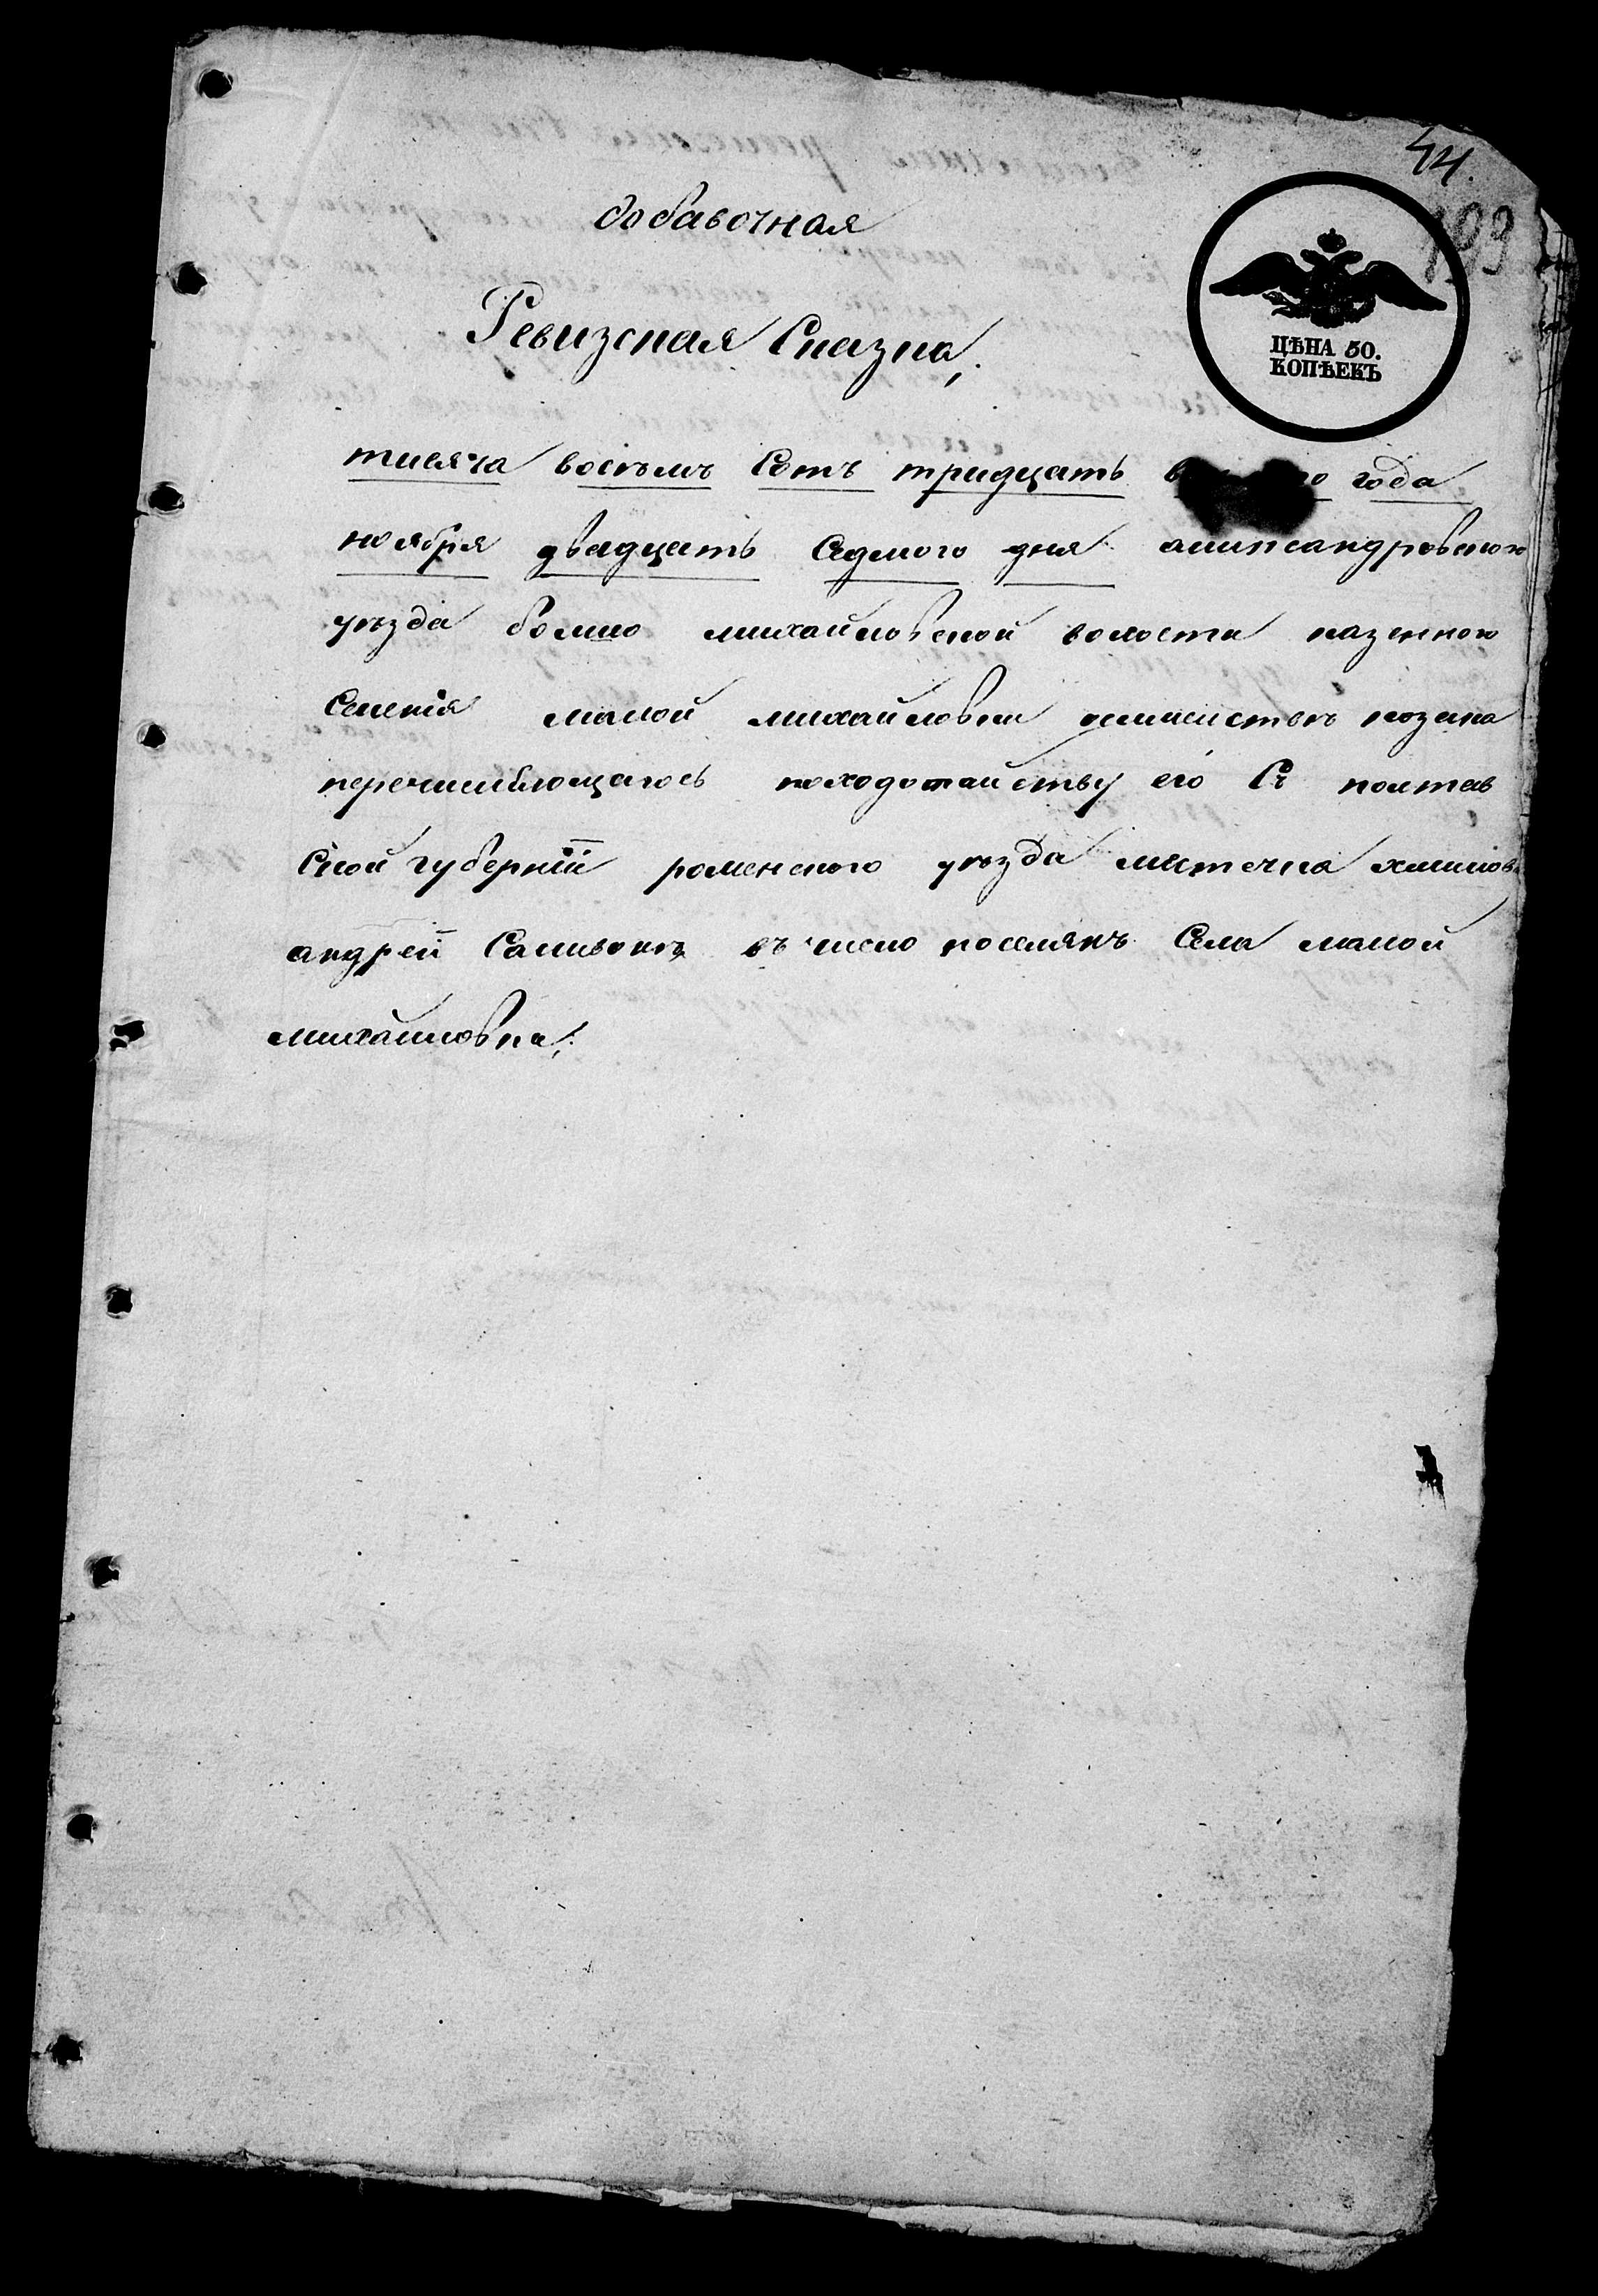 44.
193
добавочная
ЦѢНА 50.
КОПѢЕКЪ
Ревизская Сказка,
тисяча восемъ Сотъ тридцать года
ноября двадцать Седмого дня александровского
уезда болшо михайловской волости казенного
Селения малой михайловки козака
перечисляющагось походотайству его Съ полтав
ской губерніи роменского уезда местечка
андрей Саливонъ въ число поселянъ Села малой
михайловки,